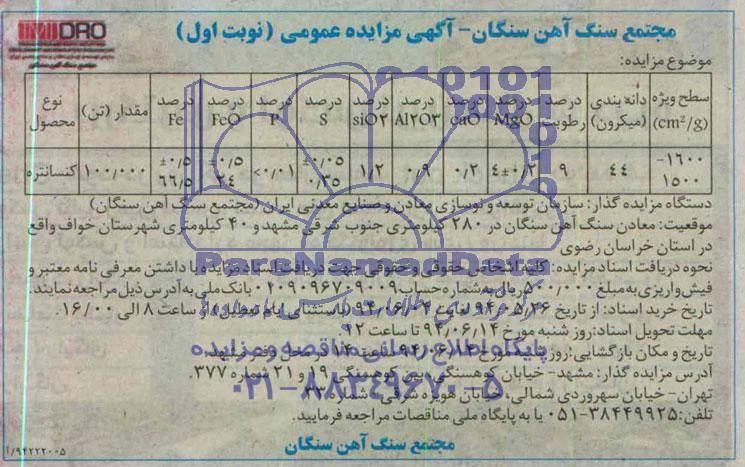 مجتمع سنگ آهن سنگان- آگهی مزایده عمومی (نوبت اول)
IMIDRO
مجتمع سنگ آهن سنگان
موضوع مزایده:
نوع محصول | مقدار (تن) | درصد Fe | درصد FeO | درصد P | درصد S | درصد siO۲ | درصد Al۲O۳ | درصد caO | درصد MgO | درصد رطوبت | دانه بندی (میکرون) | سطح ویژه (cm²/g)
کنسانتره | ۱۰۰,۰۰۰ | ±۰/۵ ۶۶/۵ | ±۰/۵ ۲۴ | <۰/۰۱ | ±۰/۰۵ ۰/۳۵ | ۱/۲ | ۰/۹ | ۰/۲ | ۴±۰/۲ | ۹ | ۴۴ | ۱۶۰۰- ۱۵۰۰
دستگاه مزایده گذار: سازمان توسعه و نوسازی معادن و صنایع معدنی ایران (مجتمع سنگ آهن سنگان)
موقعیت: معادن سنگ آهن سنگان در ۲۸۰ کیلومتری جنوب شرقی مشهد و ۴۰ کیلومتری شهرستان خواف واقع
در استان خراسان رضوی
نحوه دریافت اسناد مزایده: کلیه اشخاص حقوقی و حقوقی جهت دریافت اسناد مزایده با داشتن معرفی نامه معتبر و
فیش واریزی به مبلغ ۵۰۰,۰۰۰ ریال به شماره حساب ۰۲۰۹۰۹۶۷۰۹۰۰۹ بانک ملی به آدرس ذیل مراجعه نمایند.
تاریخ خرید اسناد: از تاریخ ۹۴/۰۵/۲۶ لغایت ۹۴/۰۶/۰۴ (باستثنای ایام تعطیل) از ساعت ۸ الی ۱۶/۰۰
مهلت تحویل اسناد: روز شنبه مورخ ۹۴/۰۶/۱۴ تا ساعت ۱۲
تاریخ و مکان بازگشایی: روز مورخ ساعت ۱۴ در محل دفتر مشهد
آدرس مزایده گذار: مشهد- خیابان کوهسنگی، بین کوهسنگی ۱۹ و ۲۱ شماره ۳۷۷.
تهران- خیابان سهروردی شمالی، خیابان هویزه شرقی- شماره ۳۳
تلفن: ۳۸۴۴۹۹۲۵-۰۵۱ یا به پایگاه ملی مناقصات مراجعه فرمایید.
مجتمع سنگ آهن سنگان
۹۴۲۲۲۰۰۵/آ
ParsNamadData
پایگاه اطلاع رسانی مناقصه و مزایده
۰۲۱-۸۸۳۴۹۶۷۰-۵